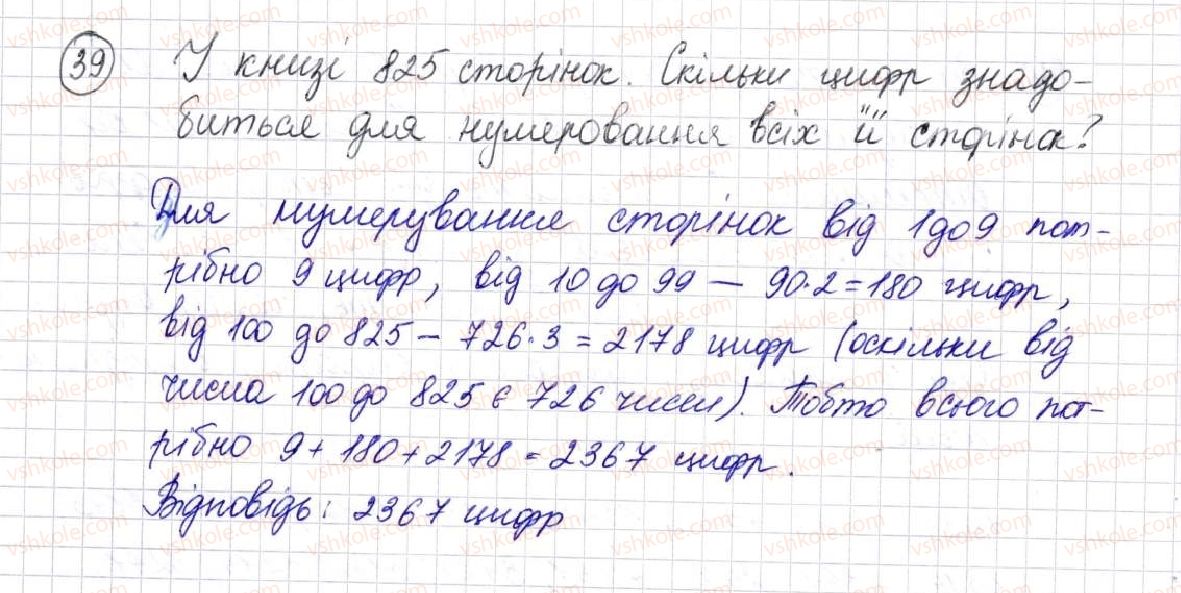 39 У книзі 825 сторінок. Скільки цифр знадо-
биться для нумеровання всіх її сторінок?
Для нумерування сторінок від 1 до 9 пот-
рібно 9 цифр, від 10 до 99 — 90·2=180 цифр,
від 100 до 825 — 726·3=2178 цифр (оскільки від
числа 100 до 825 є 726 чисел). Тобто всього пот-
рібно 9+180+2178=2367 цифр.
Відповідь: 2367 цифр
vshkole.com